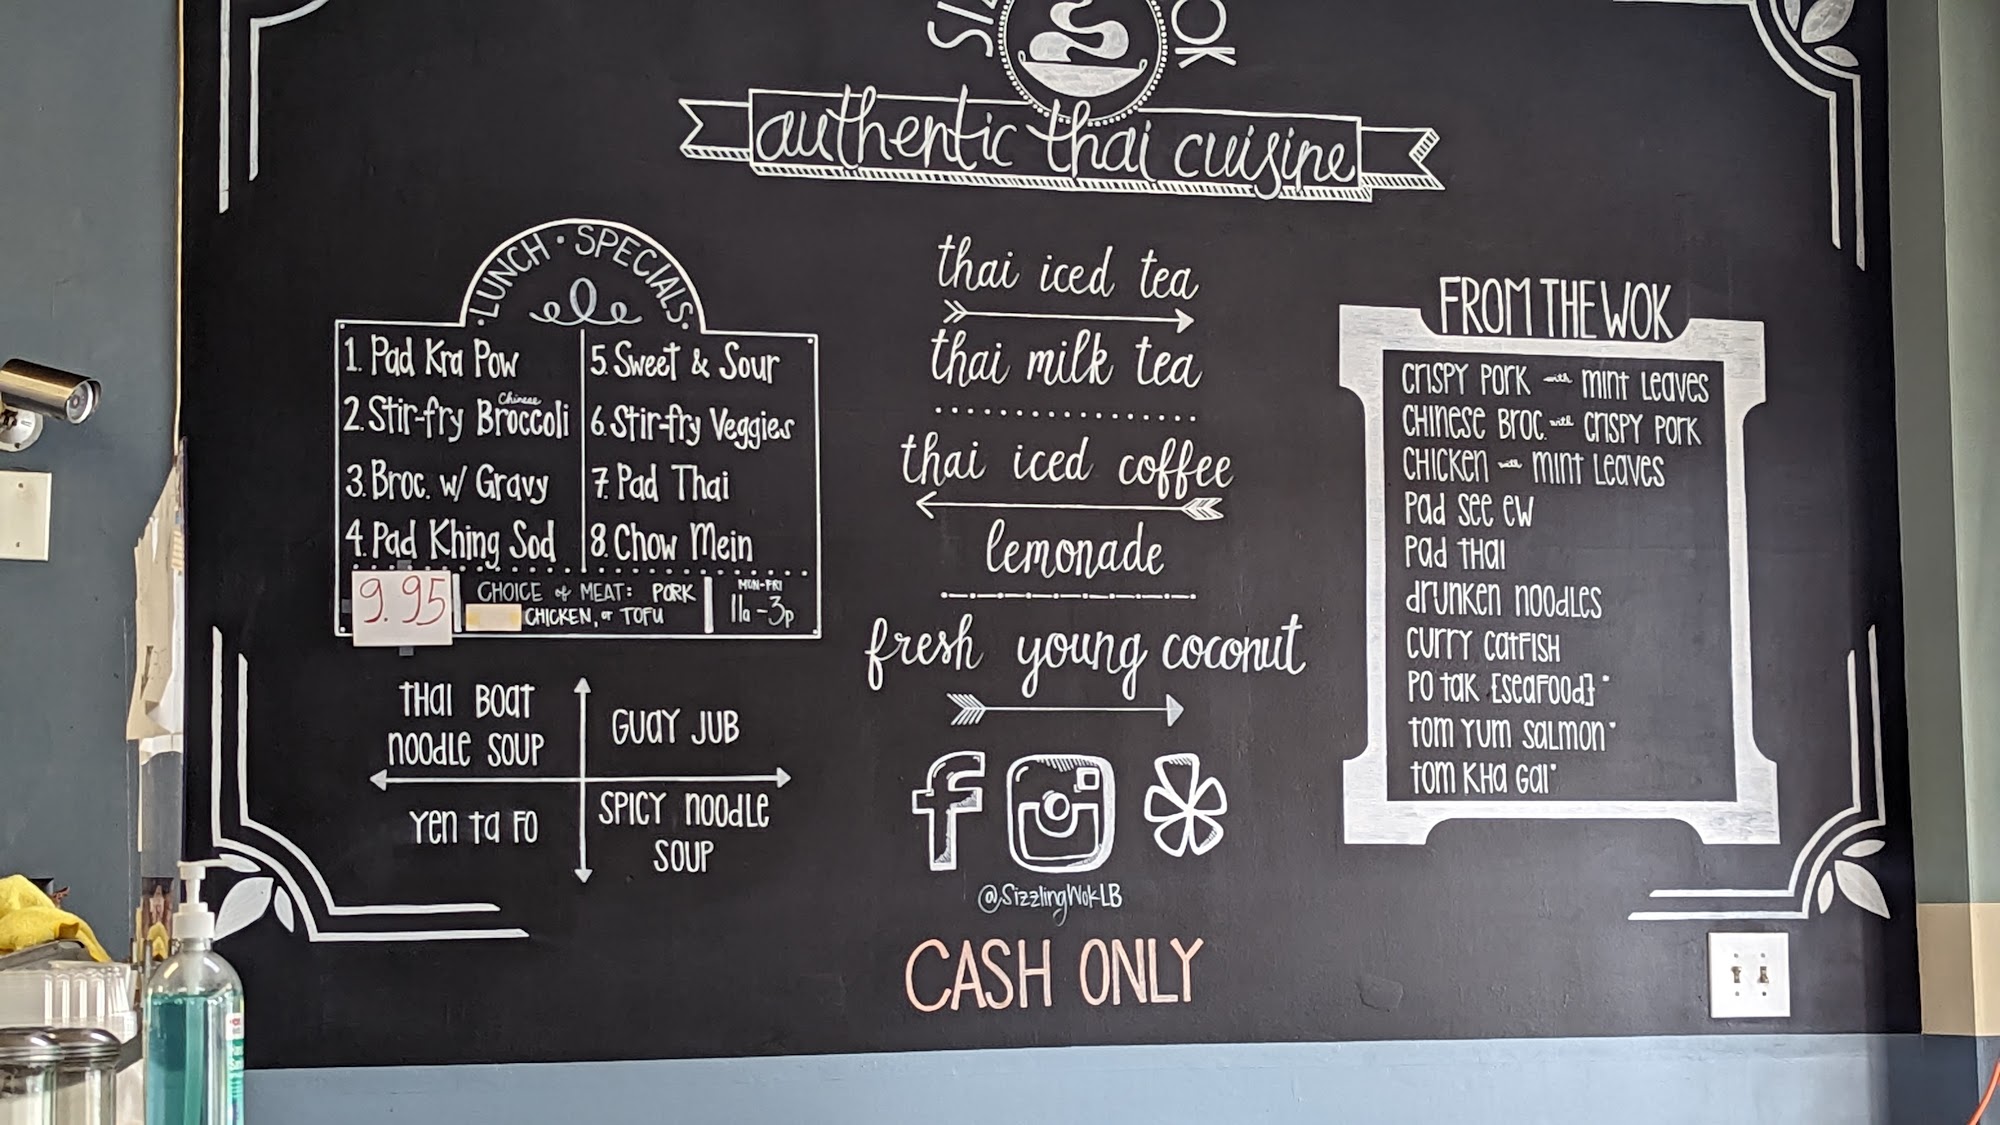 authentic thai cuisine
LUNCH · SPECIALS
1. Pad Kra Pow
2. Stir-fry Chinese Broccoli
3. Broc. w/ Gravy
4. Pad Khing Sod
5. Sweet & Sour
6. Stir-fry Veggies
7. Pad Thai
8. Chow Mein
9.95
CHOICE of MEAT: PORK
CHICKEN, or TOFU
MON-FRI
11a-3p
THAI BOAT
NOODLE SOUP
GUAY JUB
YEN TA FO
SPICY NOODLE
SOUP
thai iced tea
thai milk tea
thai iced coffee
lemonade
fresh young coconut
@SizzlingWokLB
CASH ONLY
FROM THE WOK
CRISPY PORK with MINT LEAVES
CHINESE BROC. with CRISPY PORK
CHICKEN with MINT LEAVES
PAD SEE EW
PAD THAI
DRUNKEN NOODLES
CURRY CATFISH
PO TAK {SEAFOOD}*
TOM YUM SALMON*
TOM KHA GAI*